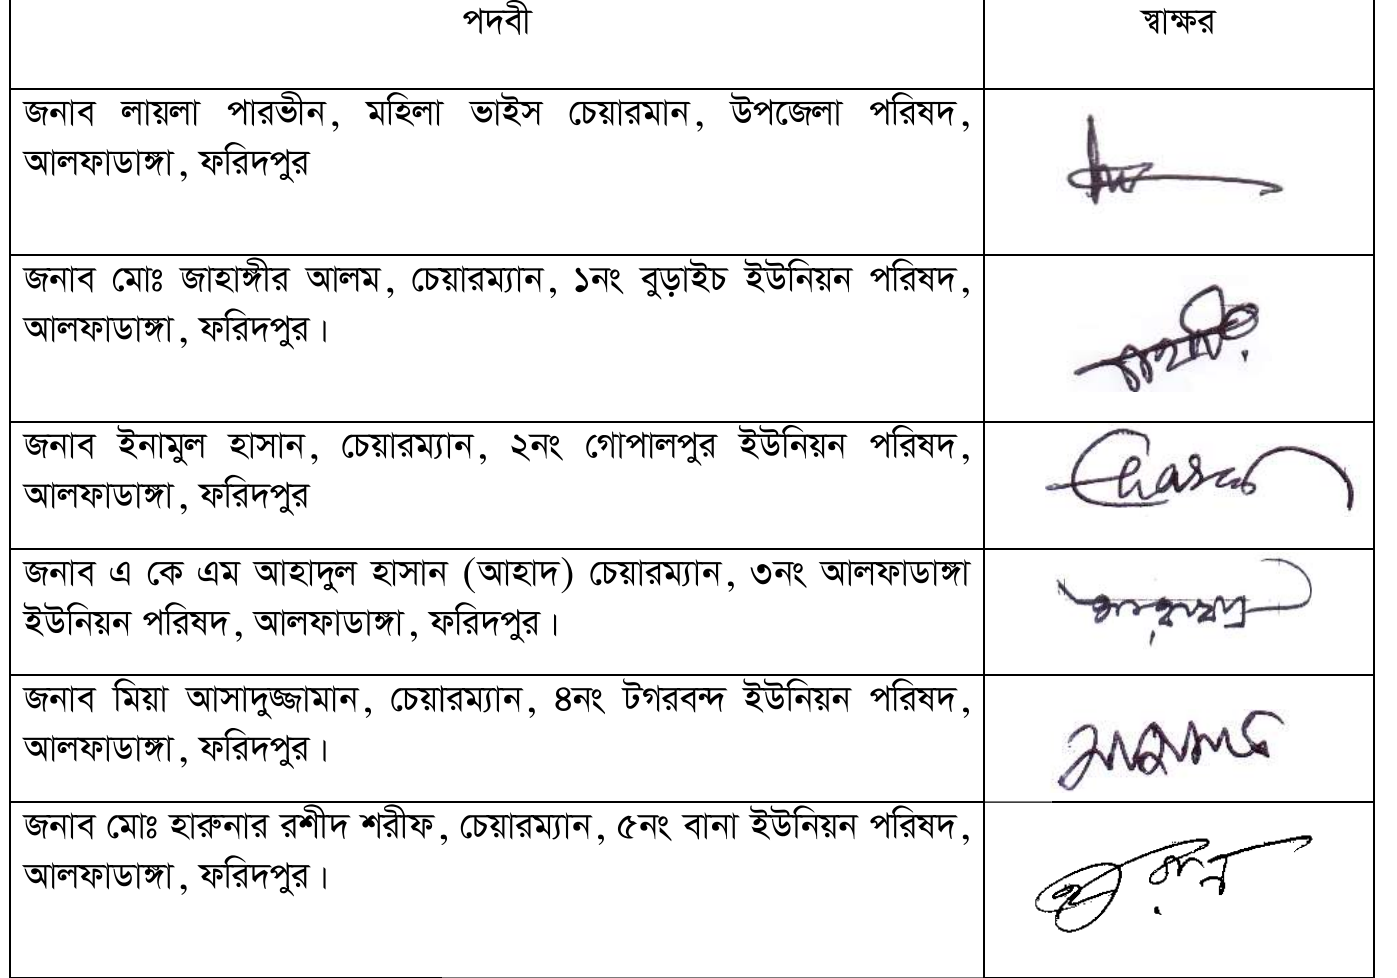 পদবী
স্বাক্ষর
জনাব লায়লা পারভীন, মহিলা ভাইস চেয়ারমান, উপজেলা পরিষদ,
আলফাডাঙ্গা, ফরিদপুর
জনাব মোঃ জাহাঙ্গীর আলম, চেয়ারম্যান, ১নং বুড়াইচ ইউনিয়ন পরিষদ,
আলফাডাঙ্গা, ফরিদপুর।
জনাব ইনামুল হাসান, চেয়ারম্যান, ২নং গোপালপুর ইউনিয়ন পরিষদ,
আলফাডাঙ্গা, ফরিদপুর
জনাব এ কে এম আহাদুল হাসান (আহাদ) চেয়ারম্যান, ৩নং আলফাডাঙ্গা
ইউনিয়ন পরিষদ, আলফাডাঙ্গা, ফরিদপুর।
জনাব মিয়া আসাদুজ্জামান, চেয়ারম্যান, ৪নং টগরবন্দ ইউনিয়ন পরিষদ,
আলফাডাঙ্গা, ফরিদপুর।
জনাব মোঃ হারুনার রশীদ শরীফ, চেয়ারম্যান, ৫নং বানা ইউনিয়ন পরিষদ,
আলফাডাঙ্গা, ফরিদপুর।